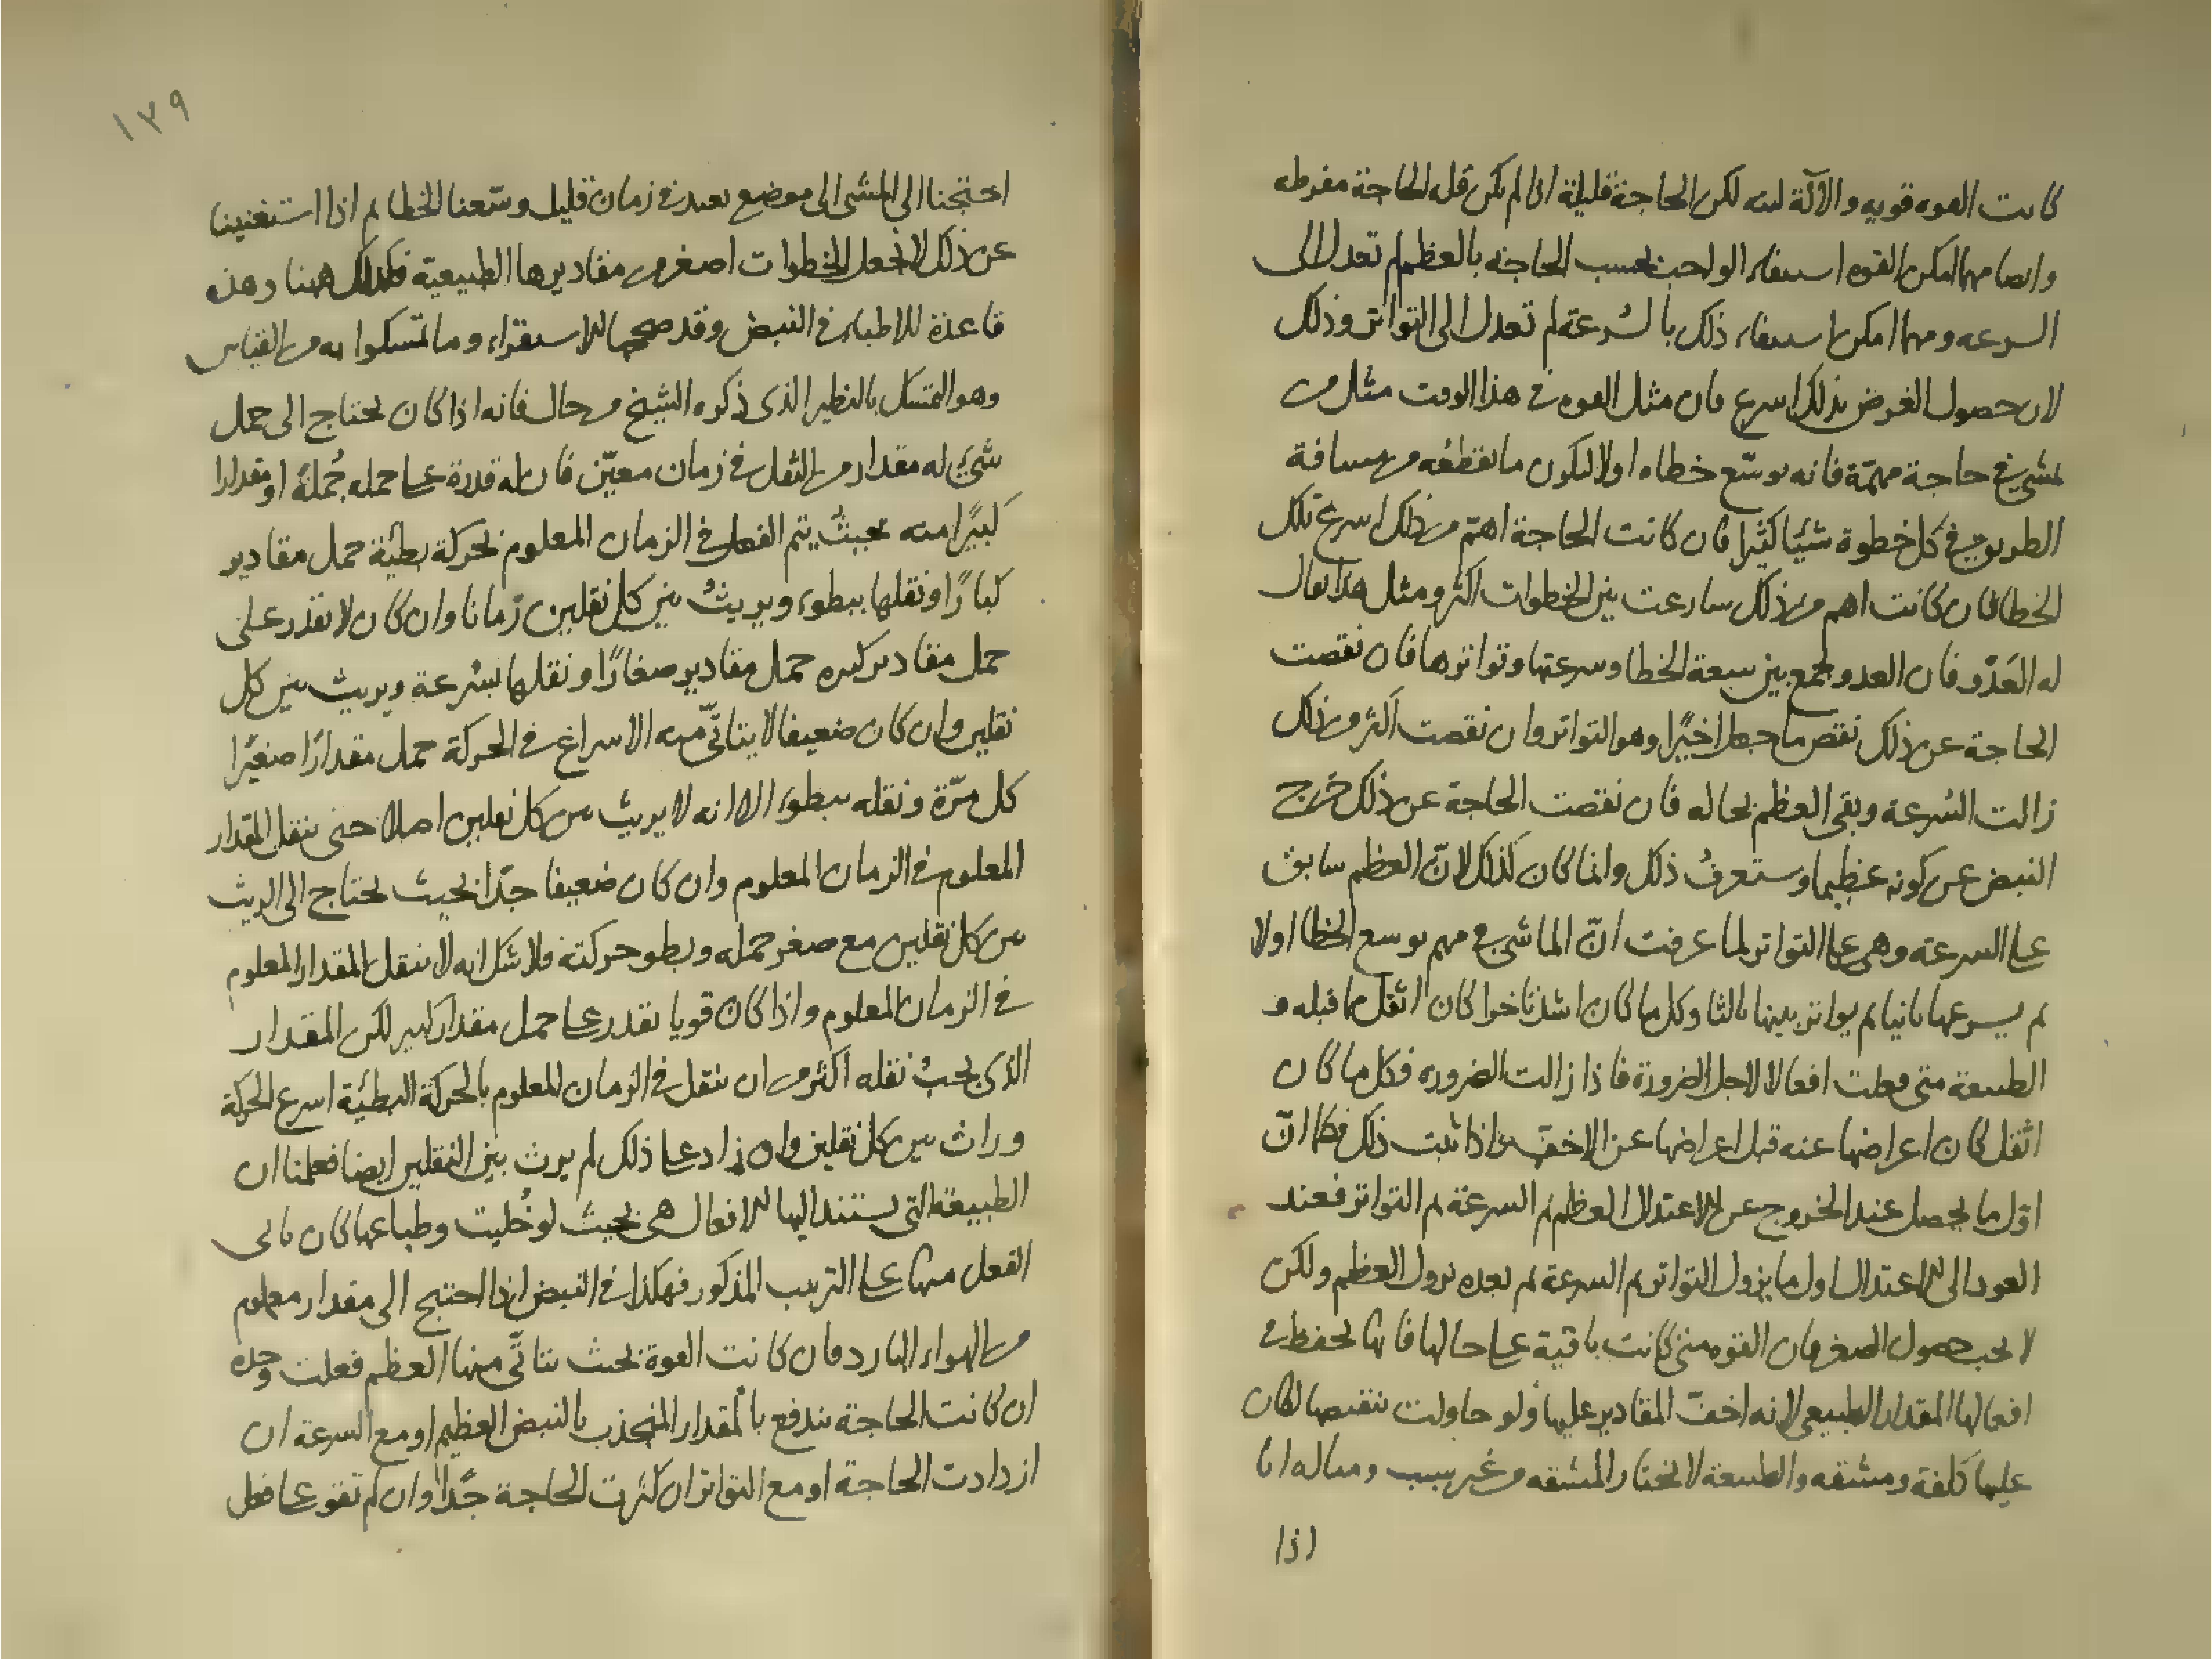 كانت القوه قويه والآلة لينه لكن الحاجة قليلة اذا لم تكن قله الحاجة مفرطه
وايضا مهما امكن القوه استيفاء الواجب بحسب الحاجة بالعظم لم تعدل الى
السرعه ومهما امكن استيفاء ذلك بالسُرعة لم تعدل الى التواتر وذلك
لان حصول الغرض بذلك اسرع فان مثل القوه فى هذا الوقت مثل من
يمشى فى حاجة مهمّة فانه يوسّع خطاه اولا ليكون ما يقطعُه من مسافة
الطريق فى كل خطوة شيئا كثيرا فان كانت الحاجة اهمّ من ذلك اسرع تلك
الخطا فان كانت اهم من ذلك سارعت بين الخطوات اكثر ومثل هذا يقال
له العَدْو فان العدو يجمع بين سعة الخطا وسرعتها وتواترها فان نقصت
الحاجة عن ذلك نقص ما حصل اخيرًا وهو التواتر وان نقصت اكثر من ذلك
زالت السُرعة وبقى العظم بحاله فان نقصت الحاجة عن ذلك خرج
النبض عن كونه عظيما وستعرفُ ذلك وانما كان كذلك لانّ العظم سابق
على السرعة وهى على التواتر لما عرفت انّ الماشى فى مهم يوسع الخطا اولا
ثم يسرعها ثانيا ثم يواتر بينها ثالثا وكل ما كان اشد تاخرا كان اثقل مما قبله و
الطبيعة متى فعلت افعالا لاجل الضرورة فاذا زالت الضروره فكل ما كان
اثقل كان اعراضها عنه قبل اعراضها عن الاخفّ واذا ثبت ذلك فكما انّ
اوّل ما يحصل عند الخروج عن الاعتدال العظم ثم السرعة ثم التواتر فعند
العود الى الاعتدال اول ما يزول التواتر ثم السرعة ثم بعده يزول العظم ولكن
لا يجب حصول الصغر فان القوه متى كانت باقية على حالها فانها تحفظ فى
افعالها المقدار الطبيعى لانه اخفّ المقادير عليها ولو حاولت تنقيصها لكان
عليها كلفة ومشقه والطبيعة لا تختار المشقه من غير سبب ومثاله انا
اذا
١٣٩
احتجنا الى المشى الى موضع بعيد فى زمان قليل وسّعنا الخطا ثم اذا استغنينا
عن ذلك لا نجعل الخطوات اصغر من مقاديرها الطبيعية فكذلك ههنا وهذه
قاعدة للاطباء فى النبض وقد صححها الاستقراء وما تمسكوا به من القياس
وهو التمسك بالنظير الذى ذكره الشيخ من حال فانه اذا كان يحتاج الى حمل
شىء له مقدار من الثقل فى زمان معيّن فان له قدرة على حمله جُملةً او مقدارا
كبيرًا منه بحيثُ يتم الفعل فى الزمان المعلوم بحركة بطيّة حمل مقادير
كبارًا ونقلها ببطوء ويريثُ بين كل نقلين زمانا وان كان لا يقدر على
حمل مقادير كبيره حمل مقادير صغارًا ونقلها بسُرعة ويريث بين كل
نقلين وان كان ضعيفا لا يتاتّى منه الاسراع فى الحركة حمل مقدارًا صغيرًا
كل مرّة ونقله ببطوء الا انه لا يريث بين كل نقلين اصلا حتى ينقل المقدار
المعلوم فى الزمان المعلوم وان كان ضعيفا جدّا بحيث يحتاج الى الريث
بين كل نقلين مع صغر حمله وبطو حركته فلا شك انه لا ينقل المقدار المعلوم
فى الزمان المعلوم واذا كان قويا يقدر على حمل مقدار كبير لكن المقدار
الذى يجبُ نقله اكثر من ان ينقل فى الزمان المعلوم بالحركة البطيّة اسرع الحركة
وراث بين كل نقلين وان زاد على ذلك لم يرث بين النقلين ايضا فعلمنا ان
الطبيعة التى يستند اليها الافعال هى بحيث لو خُليت وطباعها كان ياتى
الفعل منها على الترتيب المذكور فهكذا فى النبض اذا احتيج الى مقدار معلوم
من الهواء البارد فان كانت القوة بحيث يتاتّى منها العظم فعلت وحده
ان كانت الحاجة تندفع بالمقدار المنجذب بالنبض العظيم او مع السرعة ان
ازدادت الحاجة او مع التواتر ان كثرت الحاجة جدًا وان لم تقو على فعل